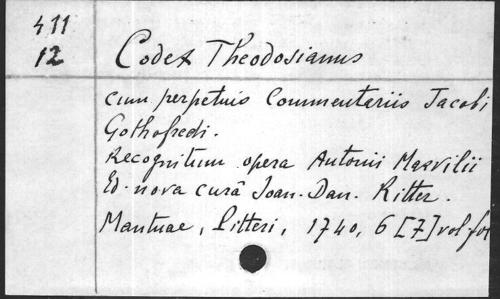 411
12
Codex Theodosianus
cum perpetuis Commentariis Jacobi
Gothofredi.
Recognitum opera Antonii Marvilii
Ed. nova curâ Joan. Dan. Ritter.
Mantuae, Pitteri, 1740, 6 [7] vol fol